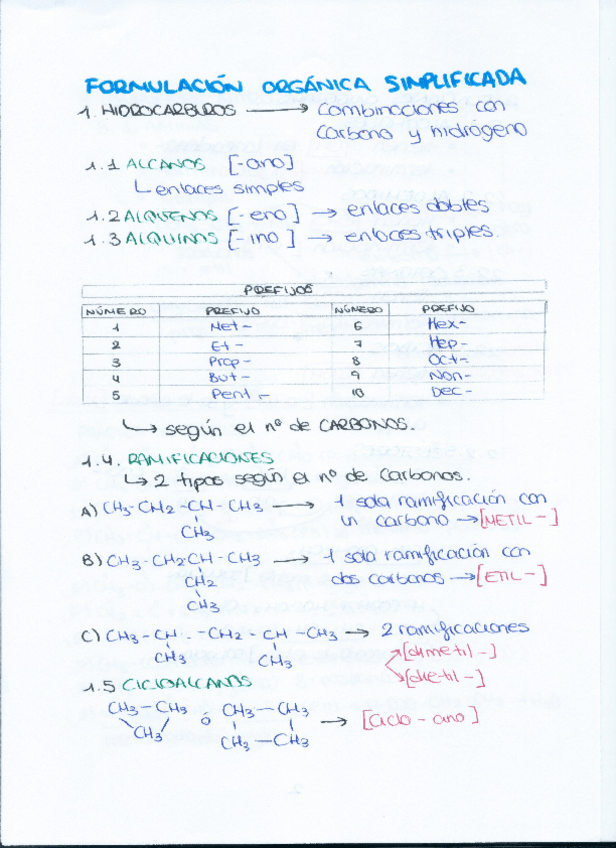 FORMULACIÓN ORGÁNICA SIMPLIFICADA
1. HIDROCARBUROS → Combinaciones con
carbono y hidrógeno
1.1 ALCANOS [-ano]
↳ enlaces simples
1.2 ALQUENOS [-eno] → enlaces dobles
1.3 ALQUINOS [-ino] → enlaces triples.
PREFIJOS
NÚMERO PREFIJO NÚMERO PREFIJO
1 Met- 6 Hex-
2 Et- 7 Hep-
3 Prop- 8 Oct-
4 But- 9 Non-
5 Pent- 10 Dec-
↳ según el nº de CARBONOS.
1.4. RAMIFICACIONES
↳ 2 tipos según el nº de carbonos.
A) CH3-CH2-CH-CH3 → 1 sola ramificación con
CH3 un carbono → [METIL-]
B) CH3-CH2CH-CH3 → 1 sola ramificación con
CH2 dos carbonos → [ETIL-]
CH3
C) CH3-CH-CH2-CH-CH3 → 2 ramificaciones
CH3 CH3 [dimetil-]
[dietil-]
1.5 CICLOALCANOS
CH3-CH3 ó CH3-CH3 → [Ciclo-ano]
CH3 CH3-CH3